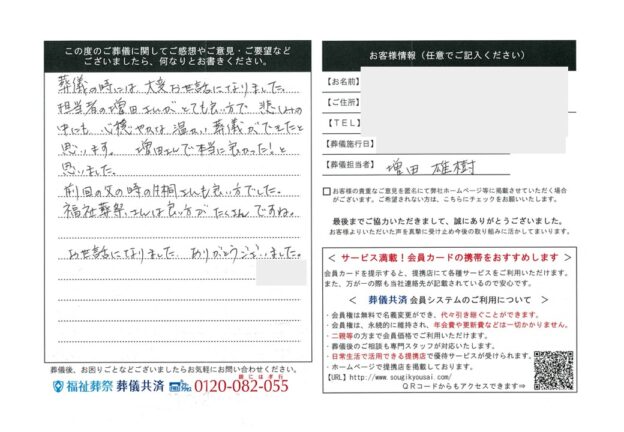 この度のご葬儀に関してご感想やご意見・ご要望など
ございましたら、何なりとお書きください。
葬儀の時には大変お世話になりました。
担当者の増田さんがとても良い方で 悲しみの
中にも 心穏やかな温かい葬儀ができたと
思います。 増田さんで本当に良かった!と
思いました。
前回の父の時の片桐さんも良い方でした。
福祉葬祭さんは良い方がたくさんですね。
お世話になりました。ありがとうございました。
葬儀後、お困りごとなどございましたらお気軽にお問い合わせください。
福祉葬祭 葬儀共済 0120-082-055
親には孝行
お客様情報(任意でご記入ください)
【お名前】
【ご住所】
【TEL】
【葬儀施行日】
【葬儀担当者】 増田 雄樹
お客様の貴重なご意見を匿名にて弊社ホームページ等に掲載させていただく場合
がございます。ご希望されない方は、こちらにチェックをお願いします。
最後までご協力いただきまして、誠にありがとうございました。
お客様よりいただいた声を真摯に受け止め今後の取り組みに活かしてまいります。
< サービス満載!会員カードの携帯をおすすめします >
会員カードを提示すると、提携店にて各種サービスをご利用いただけます。
また、万が一の際も当社連絡先が記載されているので安心です。
< 葬儀共済 会員システムのご利用について >
・会員権は無料で名義変更ができ、代々引き継ぐことができます。
・会員権は、永続的に維持され、年会費や更新費などは一切かかりません。
・二親等の方まで会員価格でご利用いただけます。
・葬儀後のご相談も専門スタッフが対応いたします。
・日常生活で活用できる提携店で優待サービスが受けられます。
・ホームページで提携店を掲載しております。
【URL】http://www.sougikyousai.com/
QRコードからもアクセスできます⇒